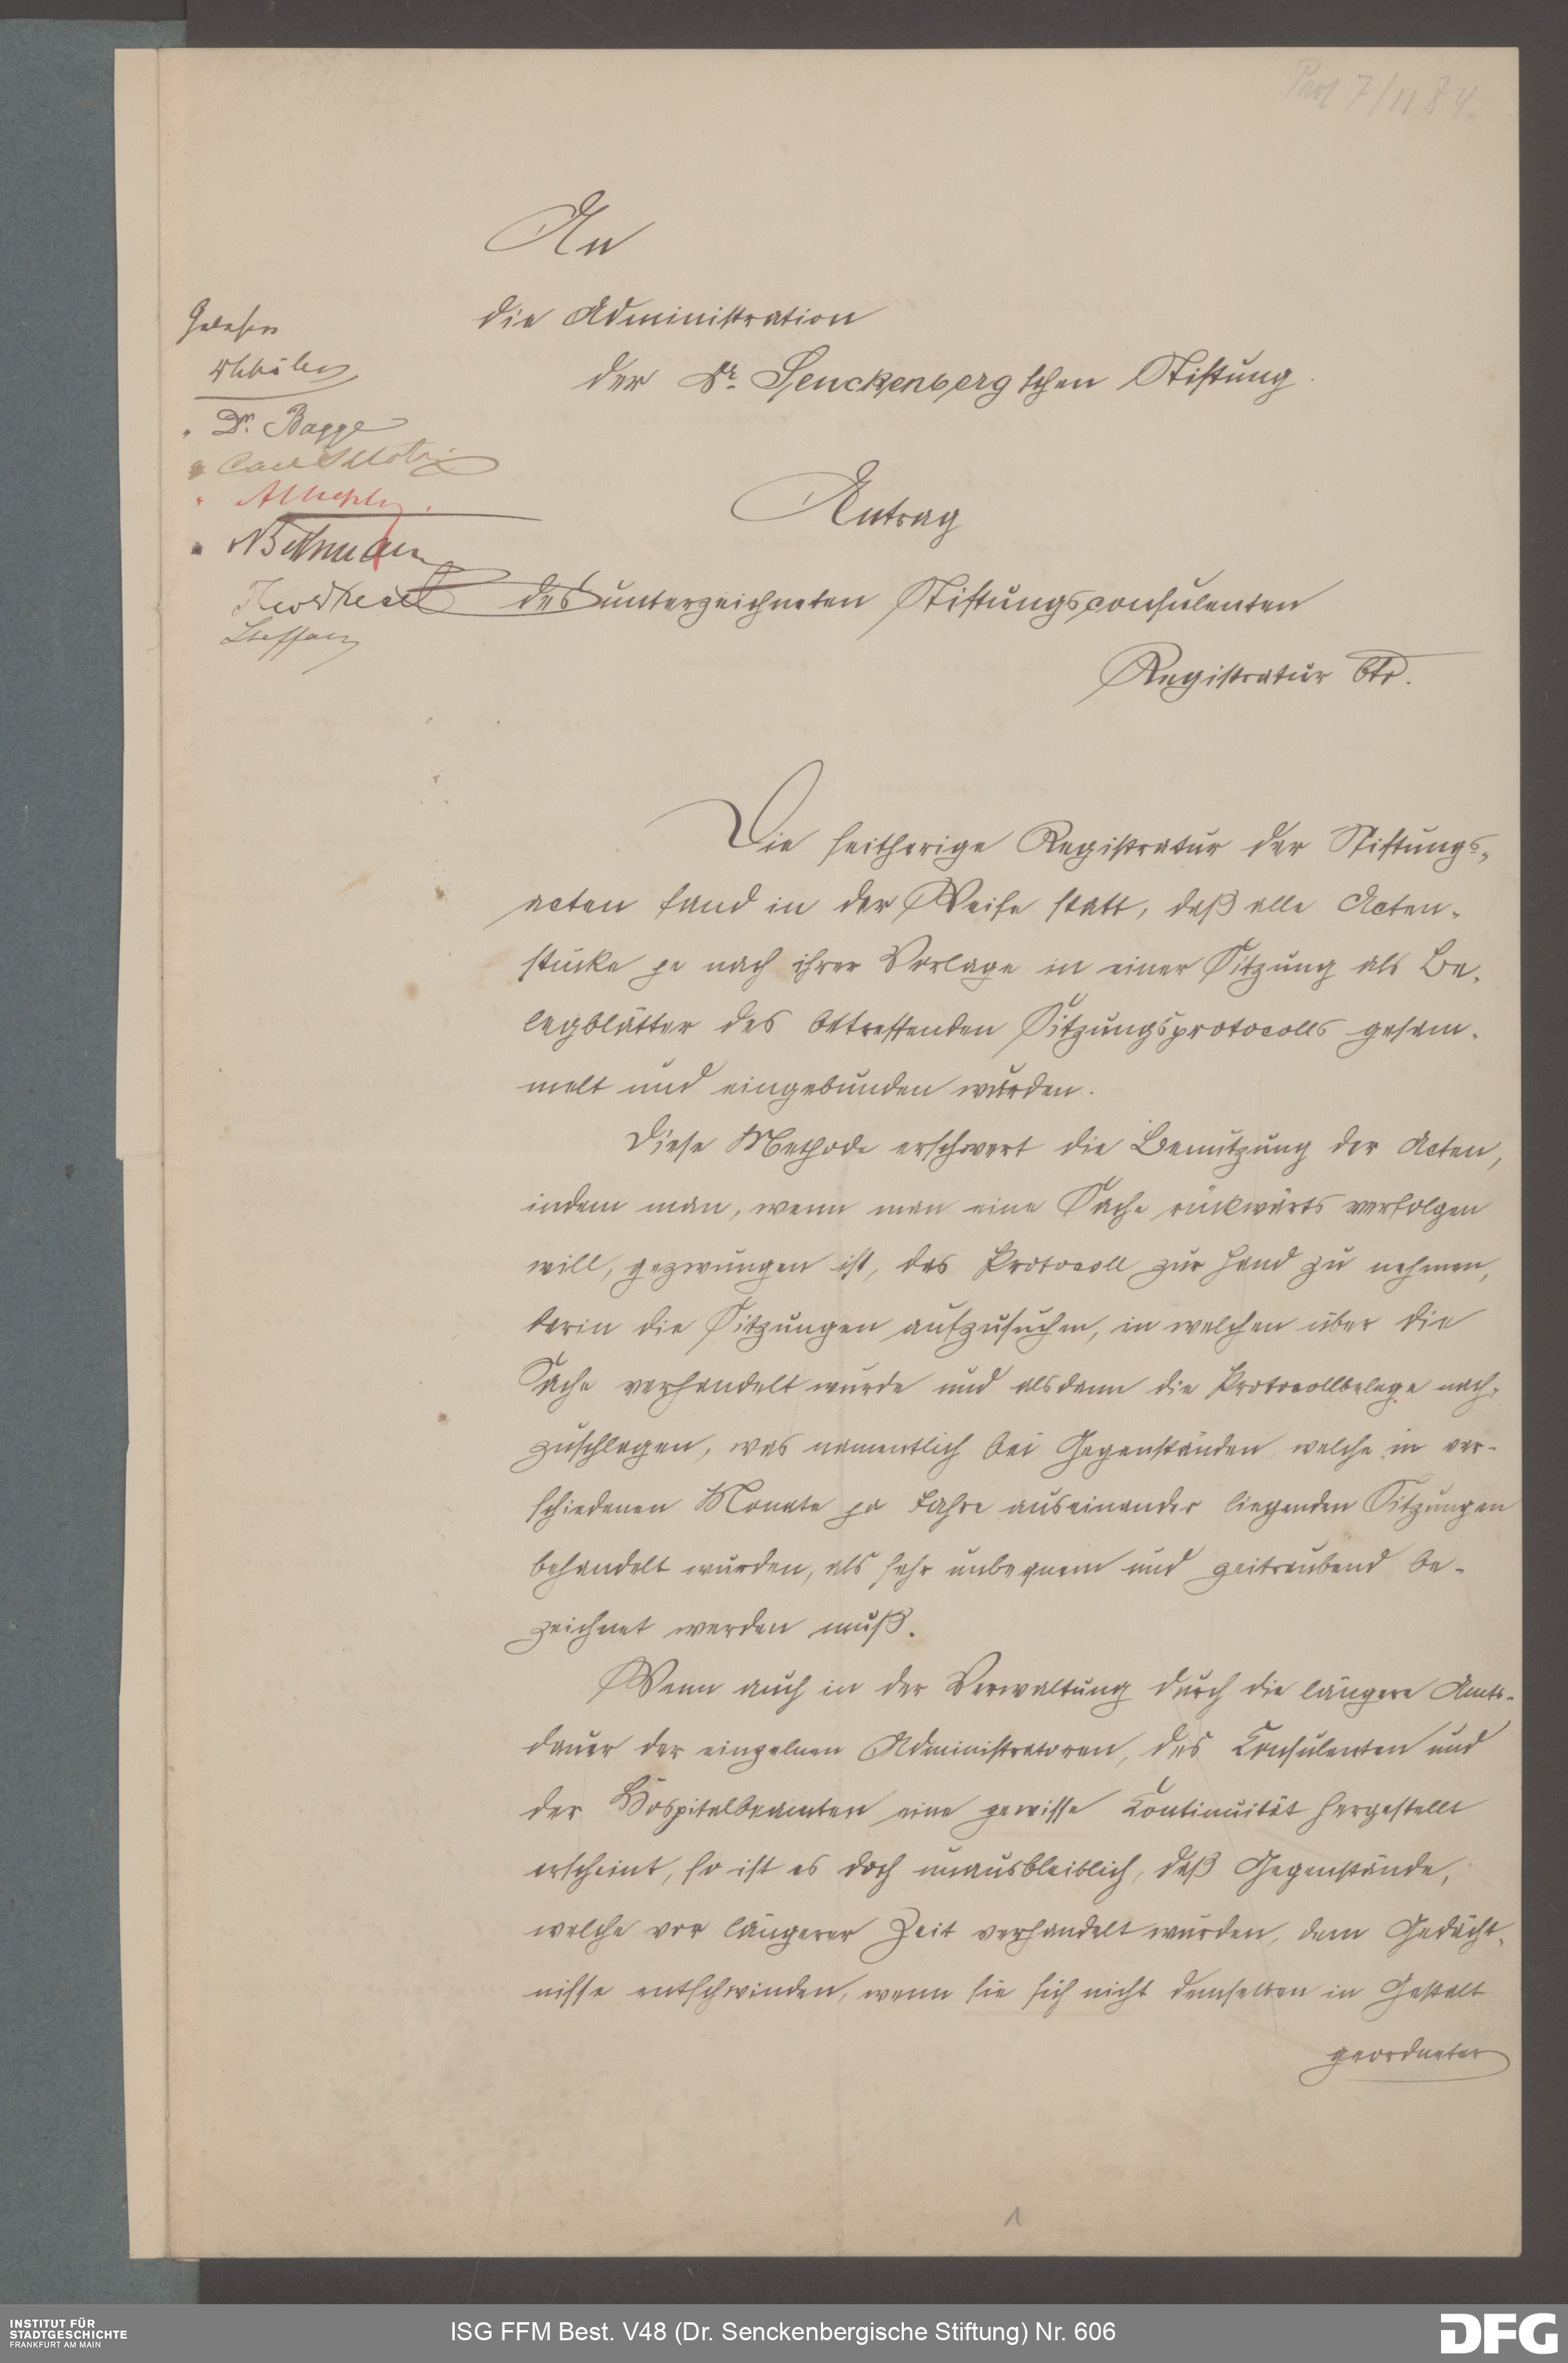 Prot 7/11 84
An
die Administration
der Dr. Senckenbergschen Stiftung.
Gelesen
" Dr. Bagge
Antrag
des unterzeichneten Stiftungsconsulenten
Registratur btr.
Die seitherige Registratur der Stiftungs-
acten fand in der Weise statt, daß alle Acten-
stücke je nach ihrer Vorlage in einer Sitzung als Be-
legblätter des betreffenden Sitzungsprotocolls gesam-
melt und eingebunden wurden.
Diese Methode erschwert die Benutzung der Acten,
indem man, wenn man eine Sache rückwärts verfolgen
will, gezwungen ist, das Protocoll zur Hand zu nehmen,
darin die Sitzungen aufzusuchen, in welchen über die
Sache verhandelt wurde und alsdann die Protocollbelege nach-
zuschlagen, was namentlich bei Gegenständen welche in ver-
schiedenen Monate ja Jahre auseinander liegenden Sitzungen
behandelt wurden, als sehr unbequem und zeitraubend be-
zeichnet werden muß.
Wenn auch in der Verwaltung durch die längere Amts-
dauer der einzelnen Administratoren, des Consulenten und
der Hospitalbeamten eine gewisse Continuität hergestellt
erscheint, so ist es doch unausbleiblich, daß Gegenstände,
welche vor längerer Zeit verhandelt wurden, dem Gedächt-
nisse entschwinden, wenn sie sich nicht demselben in Gestalt
geordneter
1
INSTITUT FÜR
STADTGESCHICHTE
FRANKFURT AM MAIN
ISG FFM Best. V48 (Dr. Senckenbergische Stiftung) Nr. 606
DFG